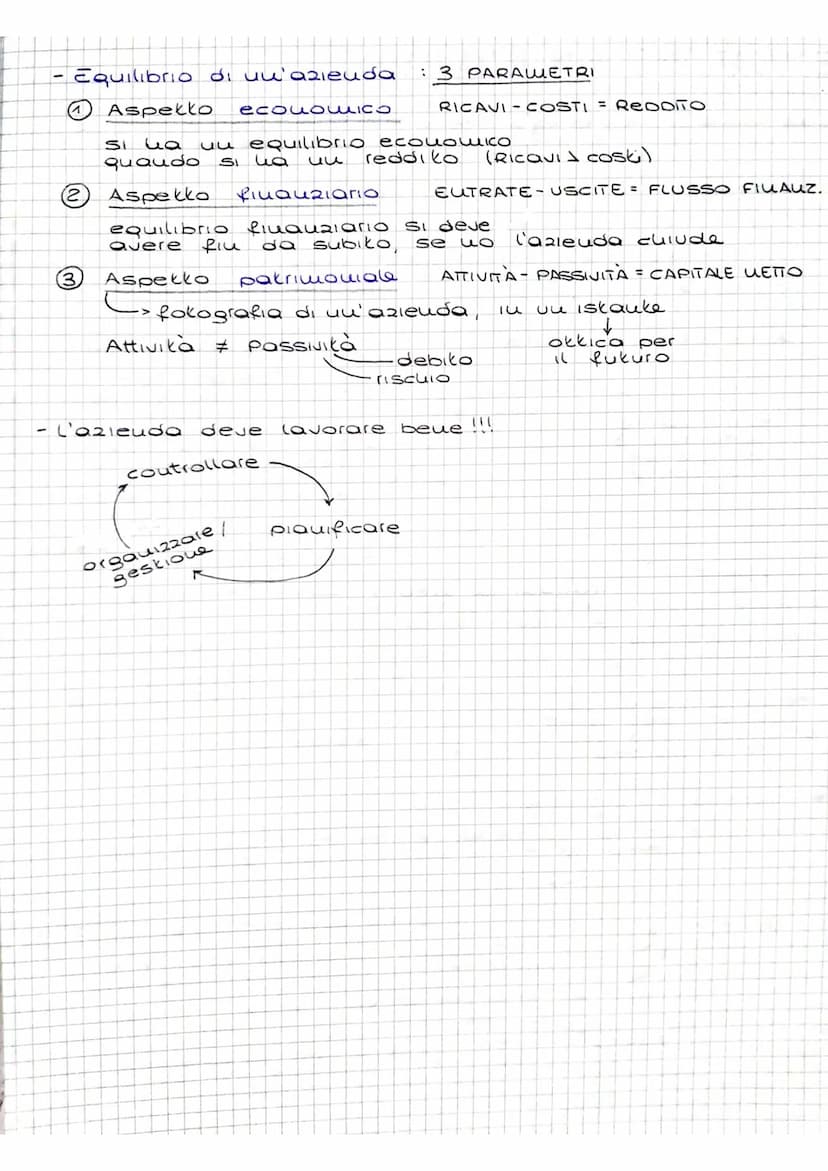 - Equilibrio di un'azienda : 3 PARAMETRI
① Aspetto economico RICAVI - COSTI = REDDITO
si ha un equilibrio economico
quando si ha un reddito (Ricavi > costi)
② Aspetto finanziario ENTRATE - USCITE = FLUSSO FINANZ.
equilibrio finanziario si deve
avere fin da subito, se no l'azienda chiude
③ Aspetto patrimoniale ATTIVITÀ - PASSIVITÀ = CAPITALE NETTO
-> fotografia di un'azienda, in un istante
Attività ≠ Passività ottica per
debito il futuro
rischio
- L'azienda deve lavorare bene !!!
controllare
pianificare
organizzare/
gestione